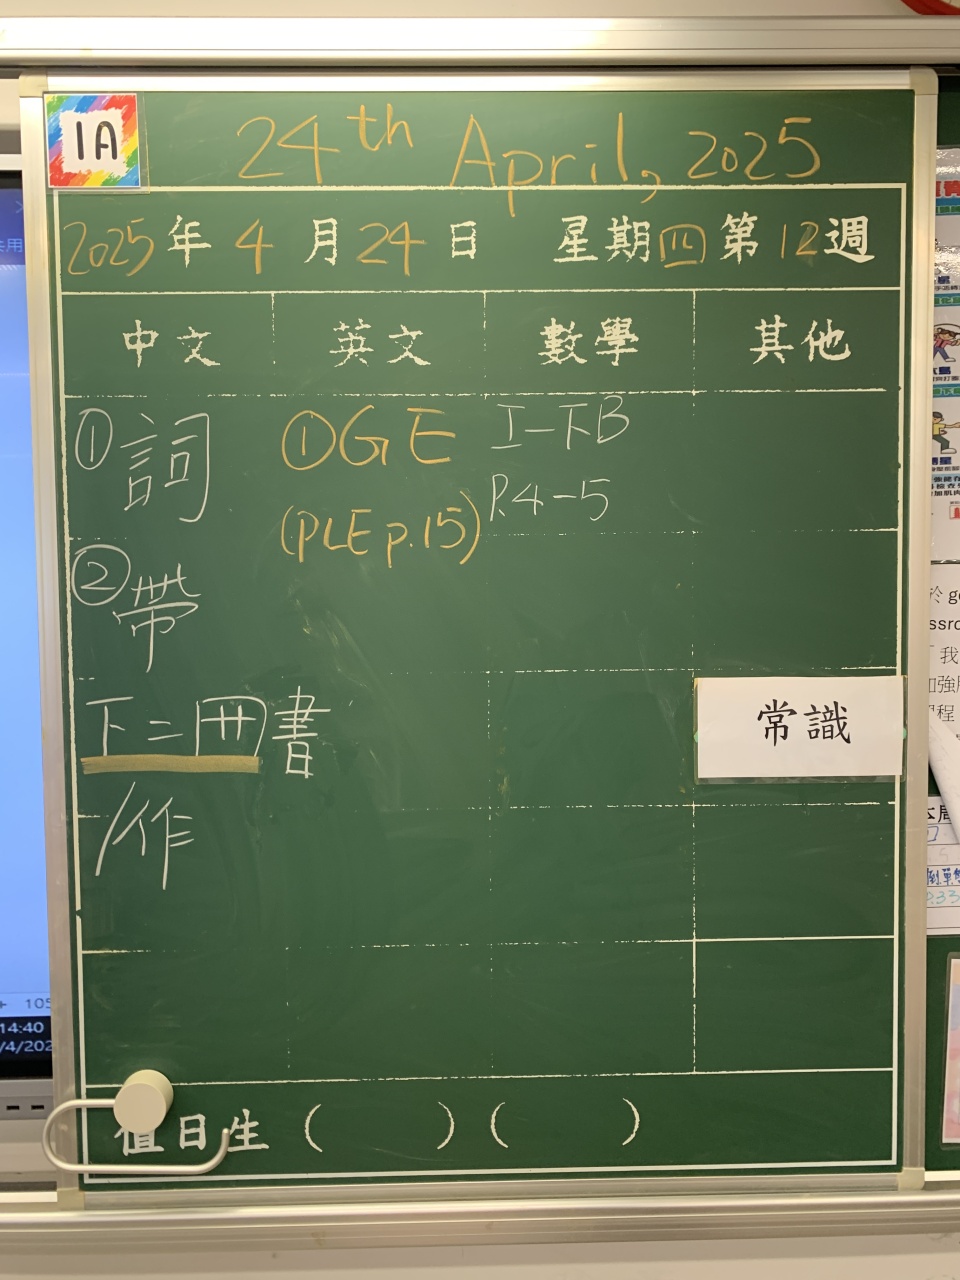 1A
24th April, 2025
2025年 4月24日 星期四 第12週
中文 英文 數學 其他
①詞
①GE
(PLE p.15)
工一下B
P.4-5
②帶
下二冊書
/作
常識
值日生 ( ) ( )
14:40